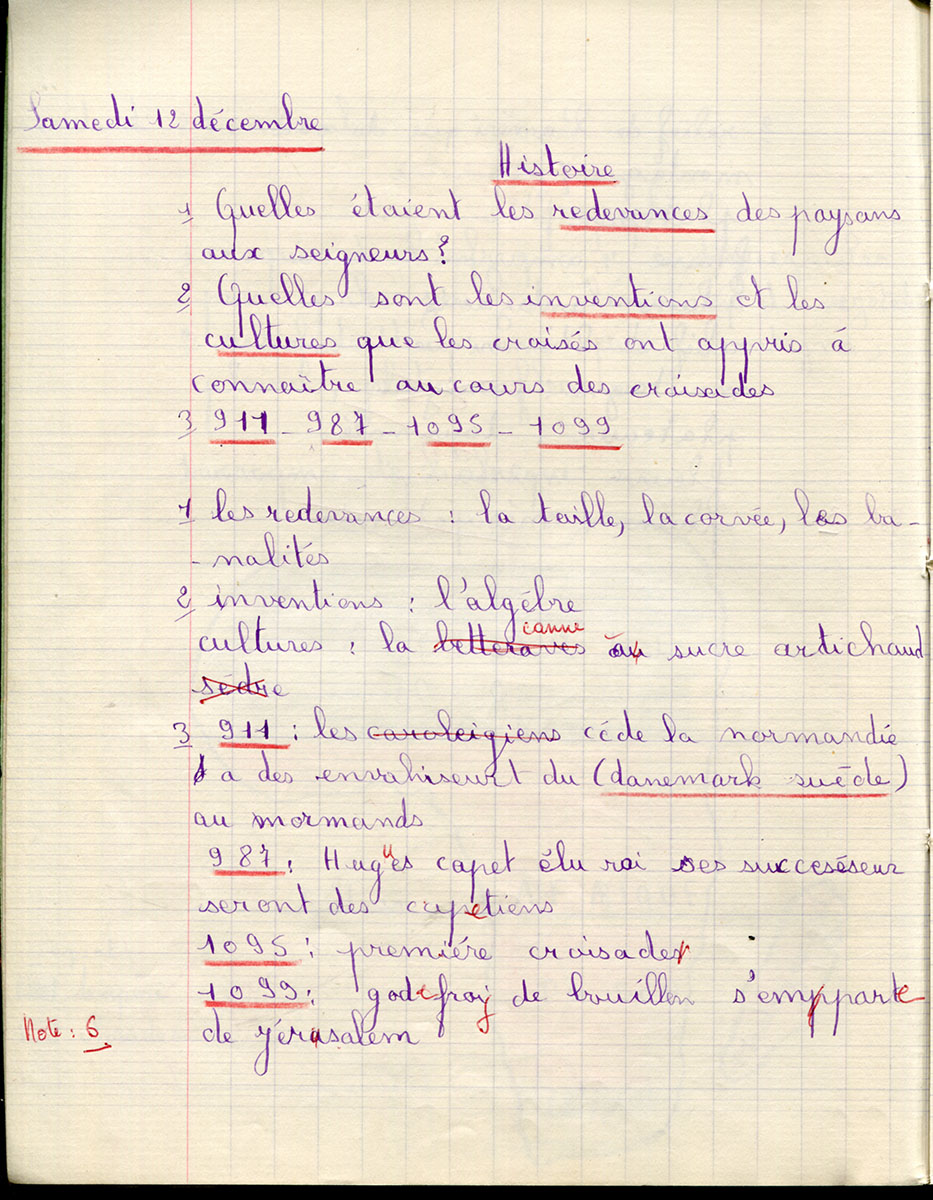 Samedi 12 décembre
Histoire
1 Quelles étaient les redevances des paysans
aux seigneurs?
2 Quelles sont les inventions et les
cultures que les croisés ont appris á
connaître au cours des croisades
3 911 - 987 - 1095 - 1099
1 les redevances : la taille, la corvée, les ba-
-nalités
2 inventions : l'algébre
canne
cultures : la betteraves au sucre artichaud
sédre
3 911 : les caroleigiens céde la normandie
a des envahiseurt du (danemark suéde)
au mormands
987 : Hugues capet élu roi ses succeséseur
seront des capetiens
1095 : premiére croisade
1099 : godefroy de bouillon s'empparte
de jérusalem
Note : 6